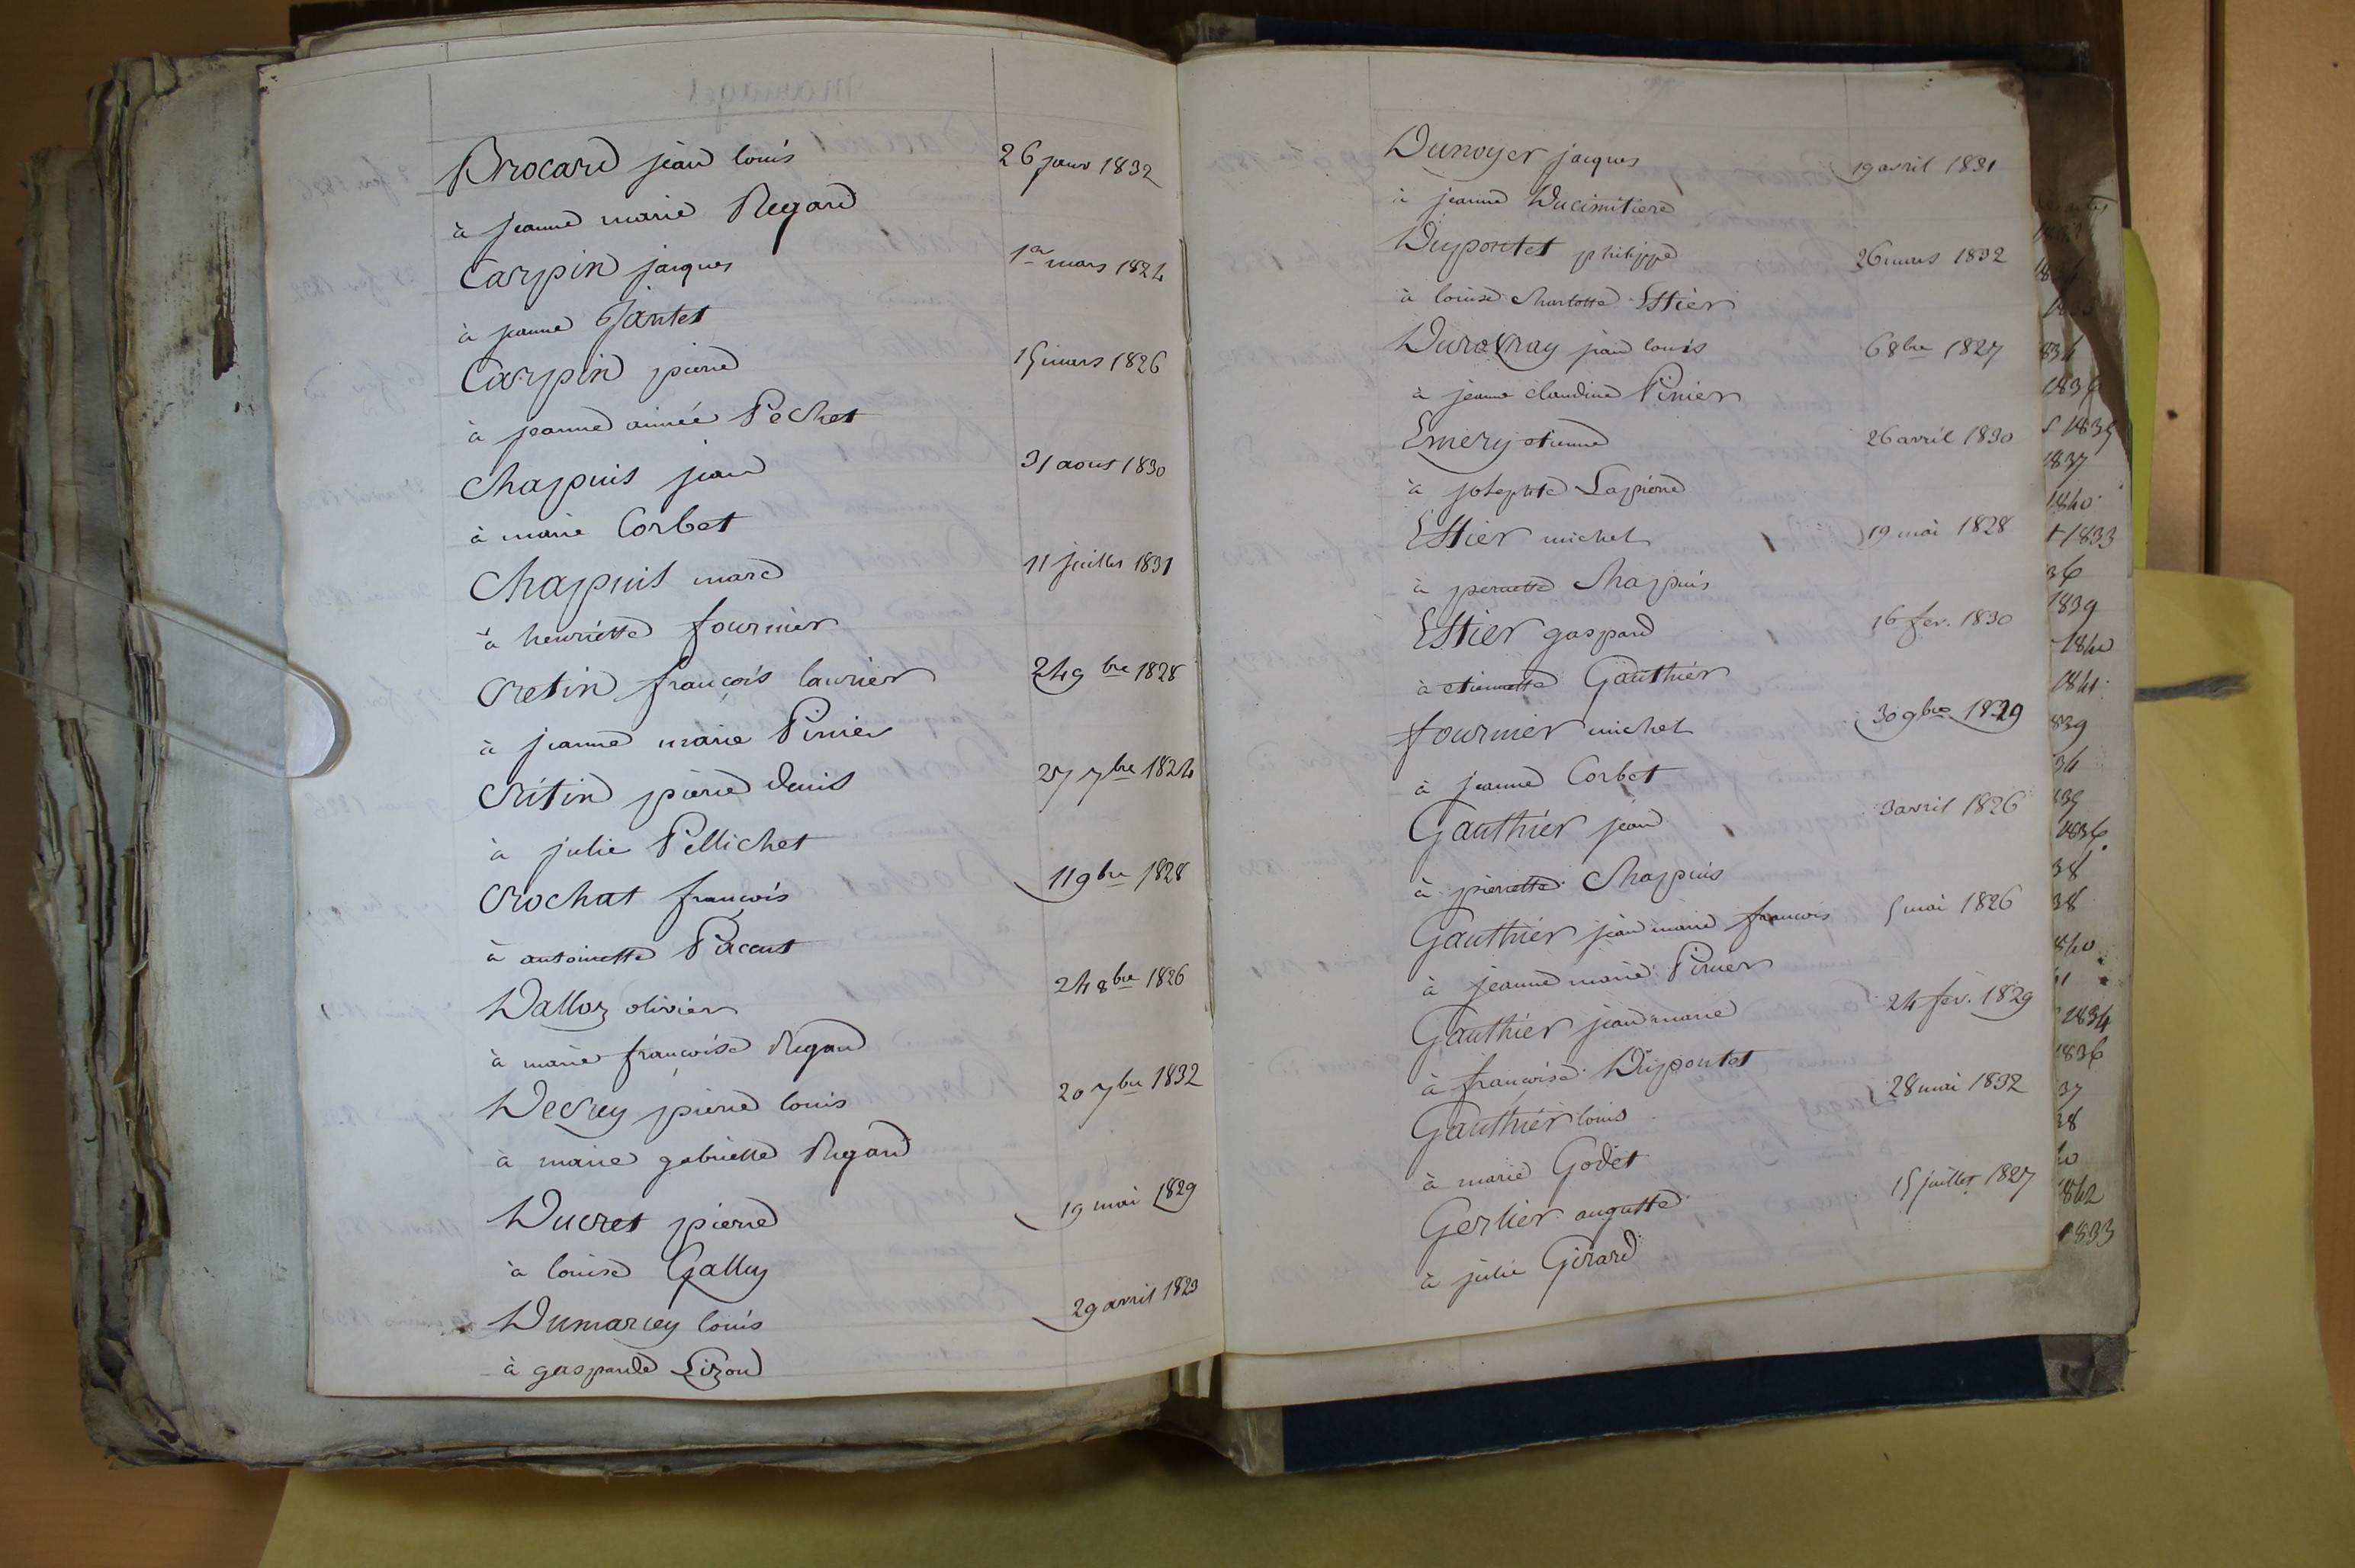 Brocard jean louis 26 janv 1832
à jeanne marie Regard
Carpin jacques 1er mars 1824
à jeanne Jantet
Carpin pierre 15 mars 1826
à jeanne aimée Péchet
Chappuis jean 31 aout 1830
à marie Corbet
Chappuis marc 11 juillet 1831
à henriette fournier
Cretin françois laurier 24 9bre 1828
à jeanne marie Pinier
Crétin pierre denis 27 7bre 1824
à julie Pellichet
Crochat françois 11 9bre 1828
à antoinette
Dalloz olivier 24 8bre 1826
à marie françoise Regard
Decrey pierre louis 20 7bre 1832
à marie gabrielle Regard
Ducret pierre 19 mai 1829
à louise Gallay
Dumarcey louis 29 avril 1823
à gasparde Lizon
Dunoyer jacques 19 avril 1831
à jeanne Ducimitiere
Dupontet philippe 26 mars 1832
à louise charlotte Estier
jean louis 6 8bre 1827
à jeanne claudine Pinier
Emery etienne 26 avril 1830
à josephte Lapierre
Estier michel 19 mai 1828
à pernette Chappuis
Estier gaspard 16 fev. 1830
à etiennette Gauthier
fournier michel 30 9bre 1829
à jeanne Corbet
Gauthier jean 3 avril 1826
à pierrette Chappuis
Gauthier jean marie francois 5 mai 1826
à jeanne marie Pinier
Gauthier jean marie 24 fev. 1829
à françoise Dupontet
Gauthier louis 28 mai 1832
à marie Godet
Gerlier auguste 15 juillet 1827
à julie Girard
1837
1840
1833
1839
1840
1841
1836
1834
1842
1833